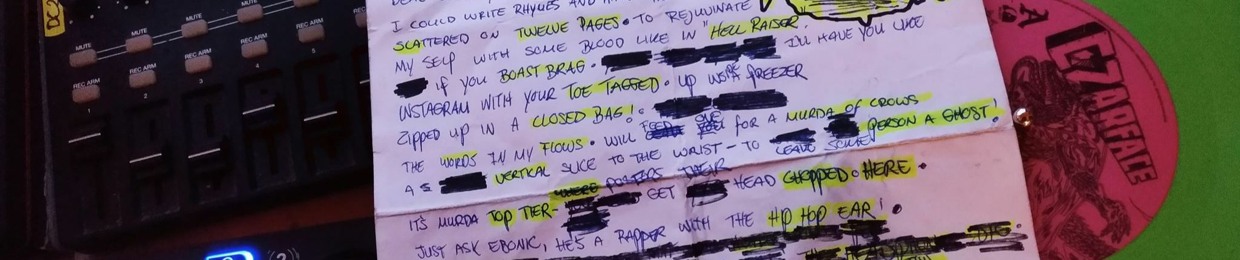 I COULD WRITE RHYMES AND
SCATTERED ON TWELVE PAGES. TO REJUVINATE
MY SELF WITH SOME BLOOD LIKE IN "HELL RAISER".
IF YOU BOAST BRAG. I'LL HAVE YOU LIKE
INSTAGRAM WITH YOUR TOE TAGGED. UP FREEZER
ZIPPED UP IN A CLOSED BAG!
THE WORDS IN MY FLOWS. WILL FEED FOR A MURDA OF CROWS
A VERTICAL SLICE TO THE WRIST - TO LEAVE SOME PERSON A GHOST!
IT'S MURDA TOP TIER- POSERS GET THEIR HEAD CHOPPED HERE.
JUST ASK EBONIC, HE'S A RAPPER WITH THE HIP HOP EAR!
MUTE
MUTE
MUTE
MUTE
MUTE
REC ARM
REC ARM
REC ARM
REC ARM
REC ARM
1
2
3
4
5
A
CZARFACE